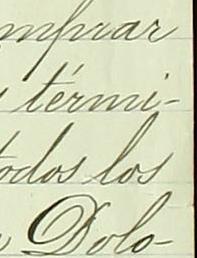 mprar
térmi-
todos los
Dolo-